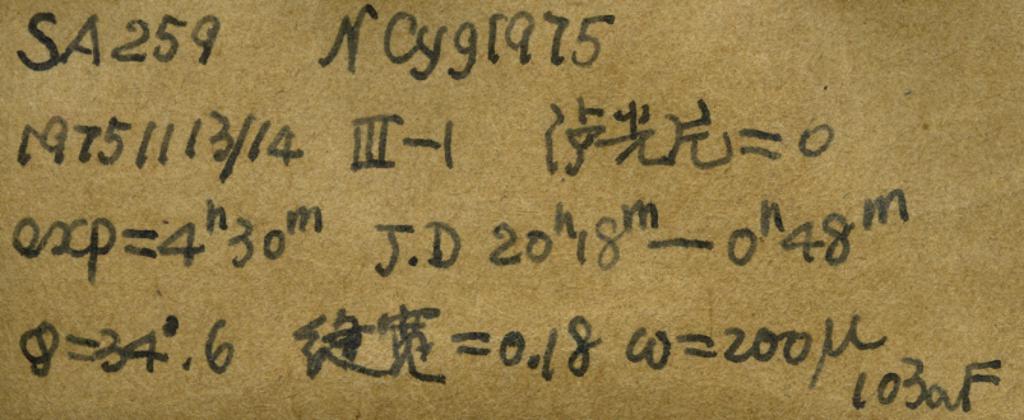 SA259 N Cyg1975
1975 11 13/14 III-1 滤光片=0
exp=4ʰ30ᵐ J.D 20ʰ18ᵐ—0ʰ48ᵐ
φ=34°.6 缝宽=0.18 ω=200μ
103aF